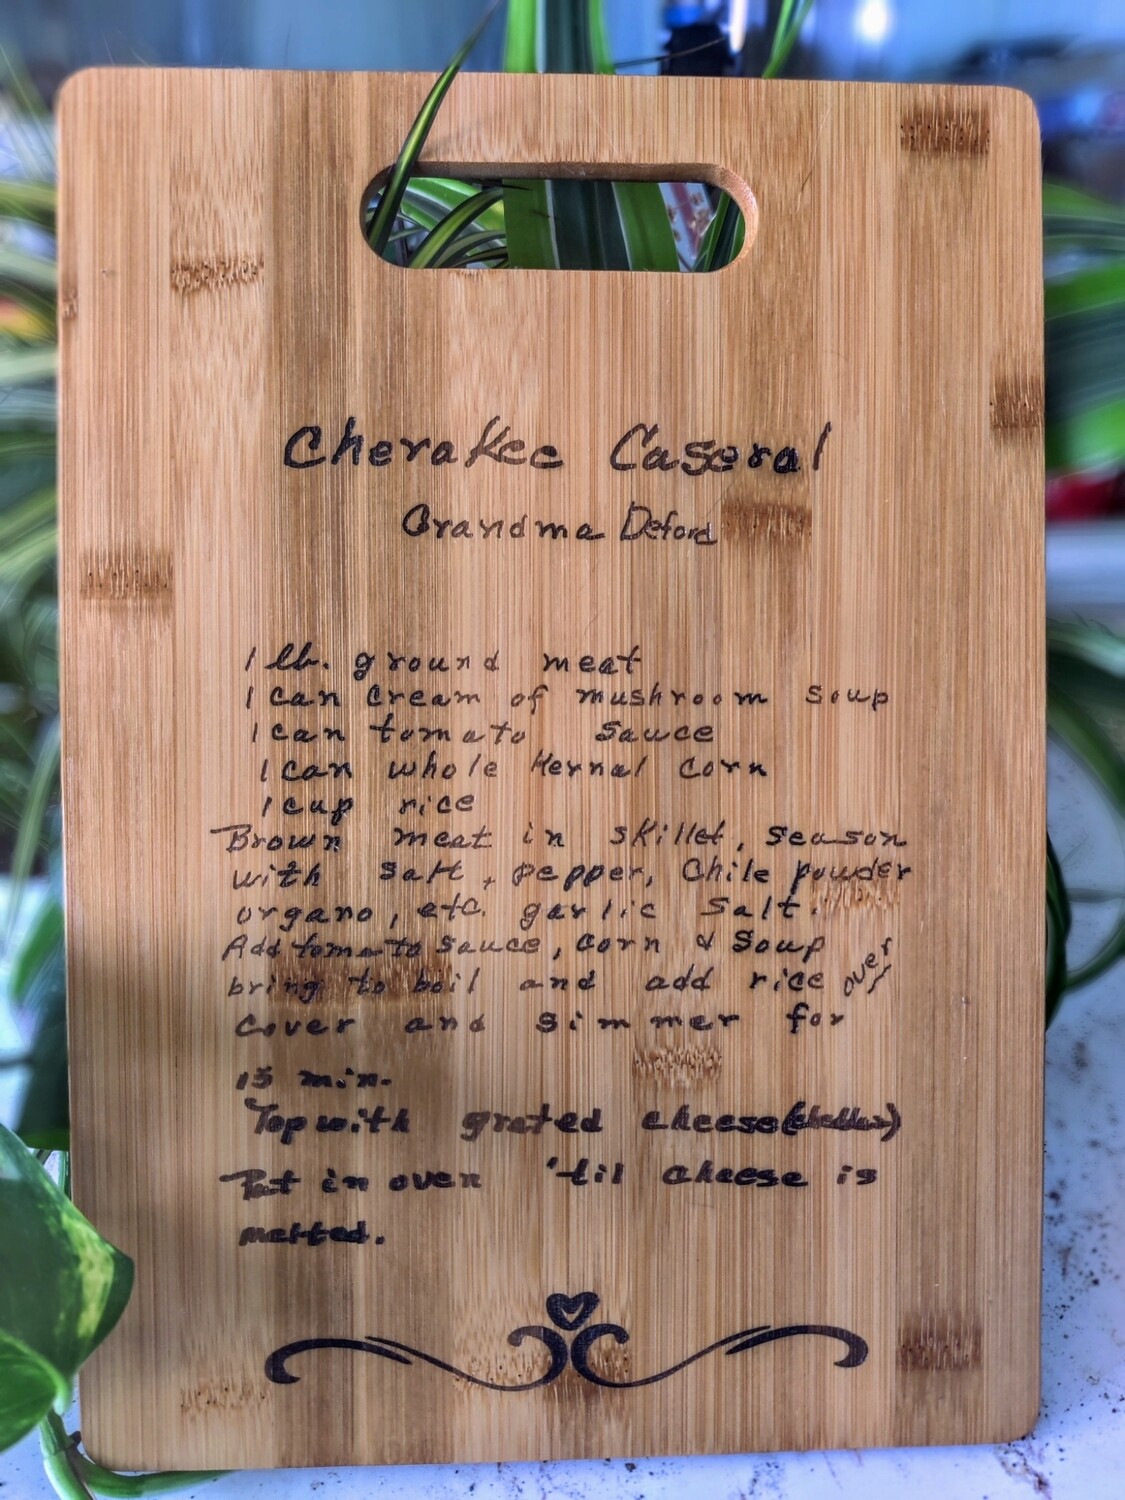 Cherakee Caseral
Grandma Deford
1 lb. ground meat
1 can cream of mushroom soup
1 can tomato sauce
1 can whole Kernal corn
1 cup rice
Brown meat in skillet, season
with salt, pepper, Chile powder
organo, etc. garlic salt.
Add tomato sauce, corn & soup
bring to boil and add rice over
cover and simmer for
15 min.
Top with grated cheese (cheddar)
Put in oven 'til cheese is
melted.